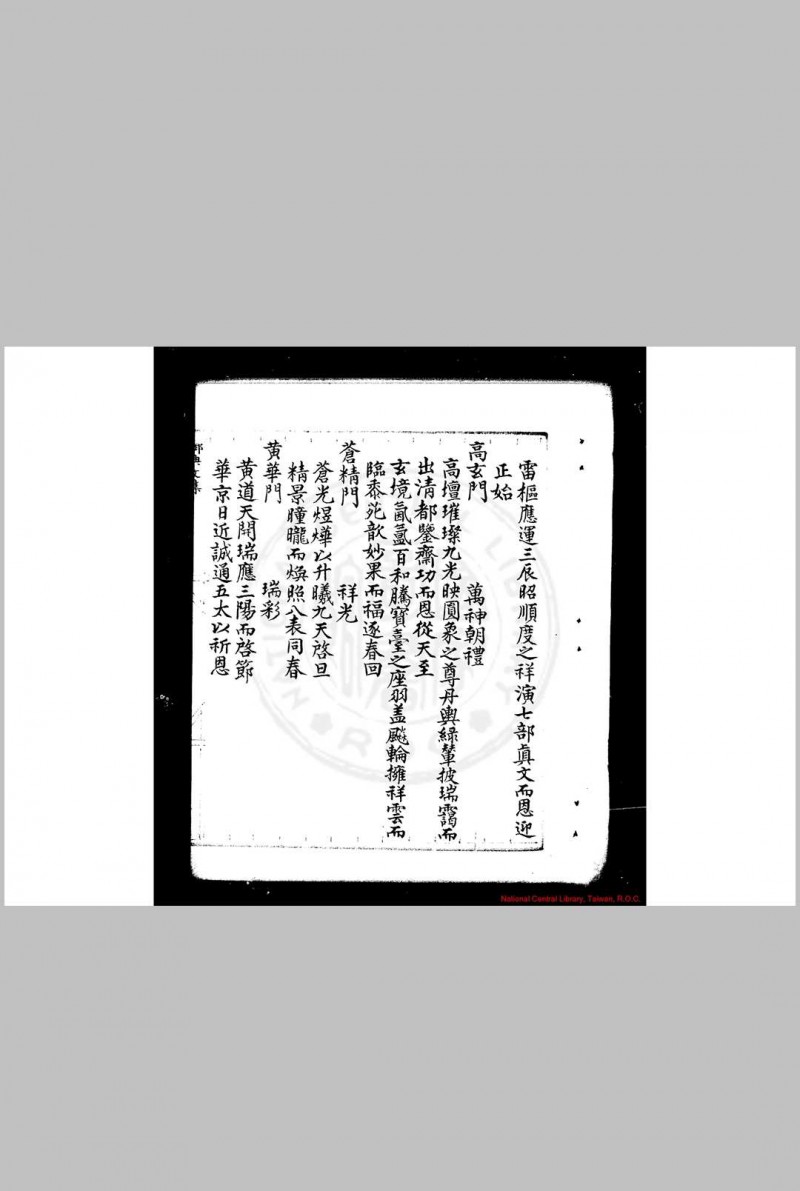 雷樞應運三辰昭順度之祥演七部眞文而恩迎
正始
高玄門 萬神朝禮
高壇璀璨九光映圓象之尊丹輿綠輦披瑞靄而
出清都鑒齋功而恩從天至
玄境氤氳百和騰寶臺之座羽盖飈輪擁祥雲而
臨黍苑歆妙果而福逐春回
蒼精門 祥光
蒼光煜燁以升曦九天啓旦
精景曈曨而煥照八表同春
黄華門 瑞彩
黄道天開瑞應三陽而啓節
華京日近誠通五太以祈恩
National Central Library, Taiwan, R.O.C.